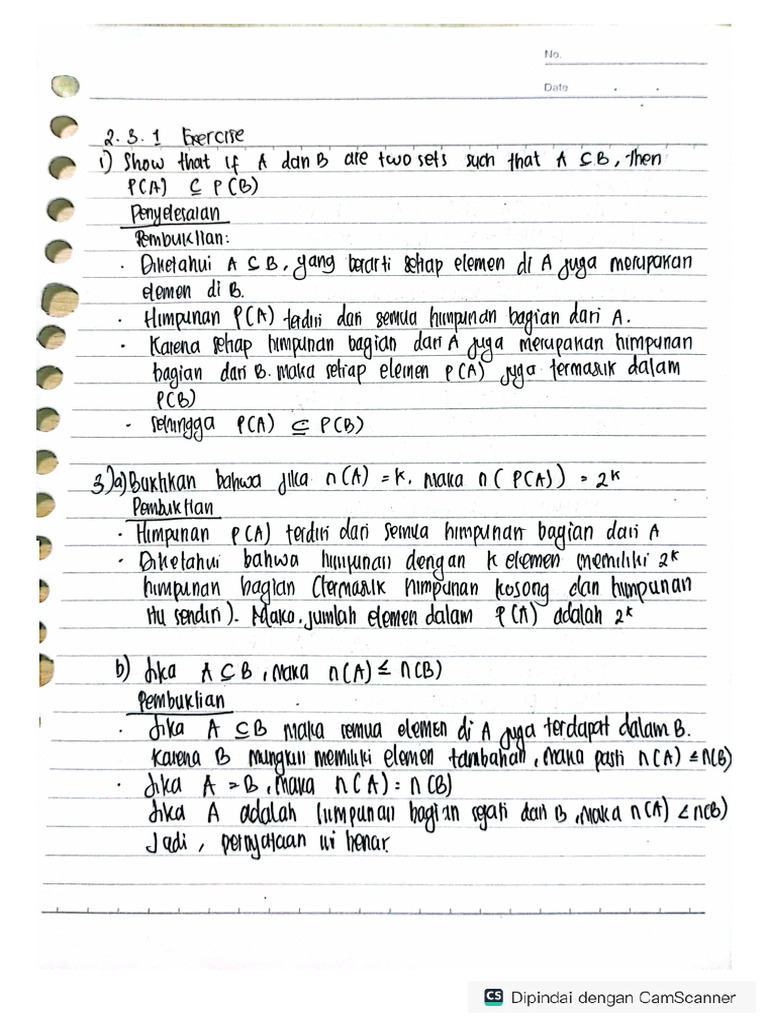 No.
Date
2.3.1 Exercise
1) Show that if A dan B are two sets such that A ⊆ B, then
P(A) ⊆ P(B)
Penyelesaian
Pembuktian:
· Diketahui A ⊆ B, yang berarti setiap elemen di A juga merupakan
elemen di B.
· Himpunan P(A) terdiri dari semua himpunan bagian dari A.
· Karena setiap himpunan bagian dari A juga merupakan himpunan
bagian dari B. maka setiap elemen P(A) juga termasuk dalam
P(B)
· sehingga P(A) ⊆ P(B)
3) a) Buktikan bahwa jika n(A) = k, maka n(P(A)) = 2ᵏ
Pembuktian
· Himpunan P(A) terdiri dari semua himpunan bagian dari A
· Diketahui bahwa himpunan dengan k elemen memiliki 2ᵏ
himpunan bagian (termasuk himpunan kosong dan himpunan
itu sendiri). Maka, jumlah elemen dalam P(A) adalah 2ᵏ
b) Jika A ⊆ B, maka n(A) ≤ n(B)
Pembuktian
· Jika A ⊆ B maka semua elemen di A juga terdapat dalam B.
Karena B mungkin memiliki elemen tambahan, maka pasti n(A) ≤ n(B)
· Jika A = B, maka n(A) = n(B)
Jika A adalah himpunan bagian sejati dari B, maka n(A) < n(B)
Jadi, pernyataan ini benar.
CS Dipindai dengan CamScanner